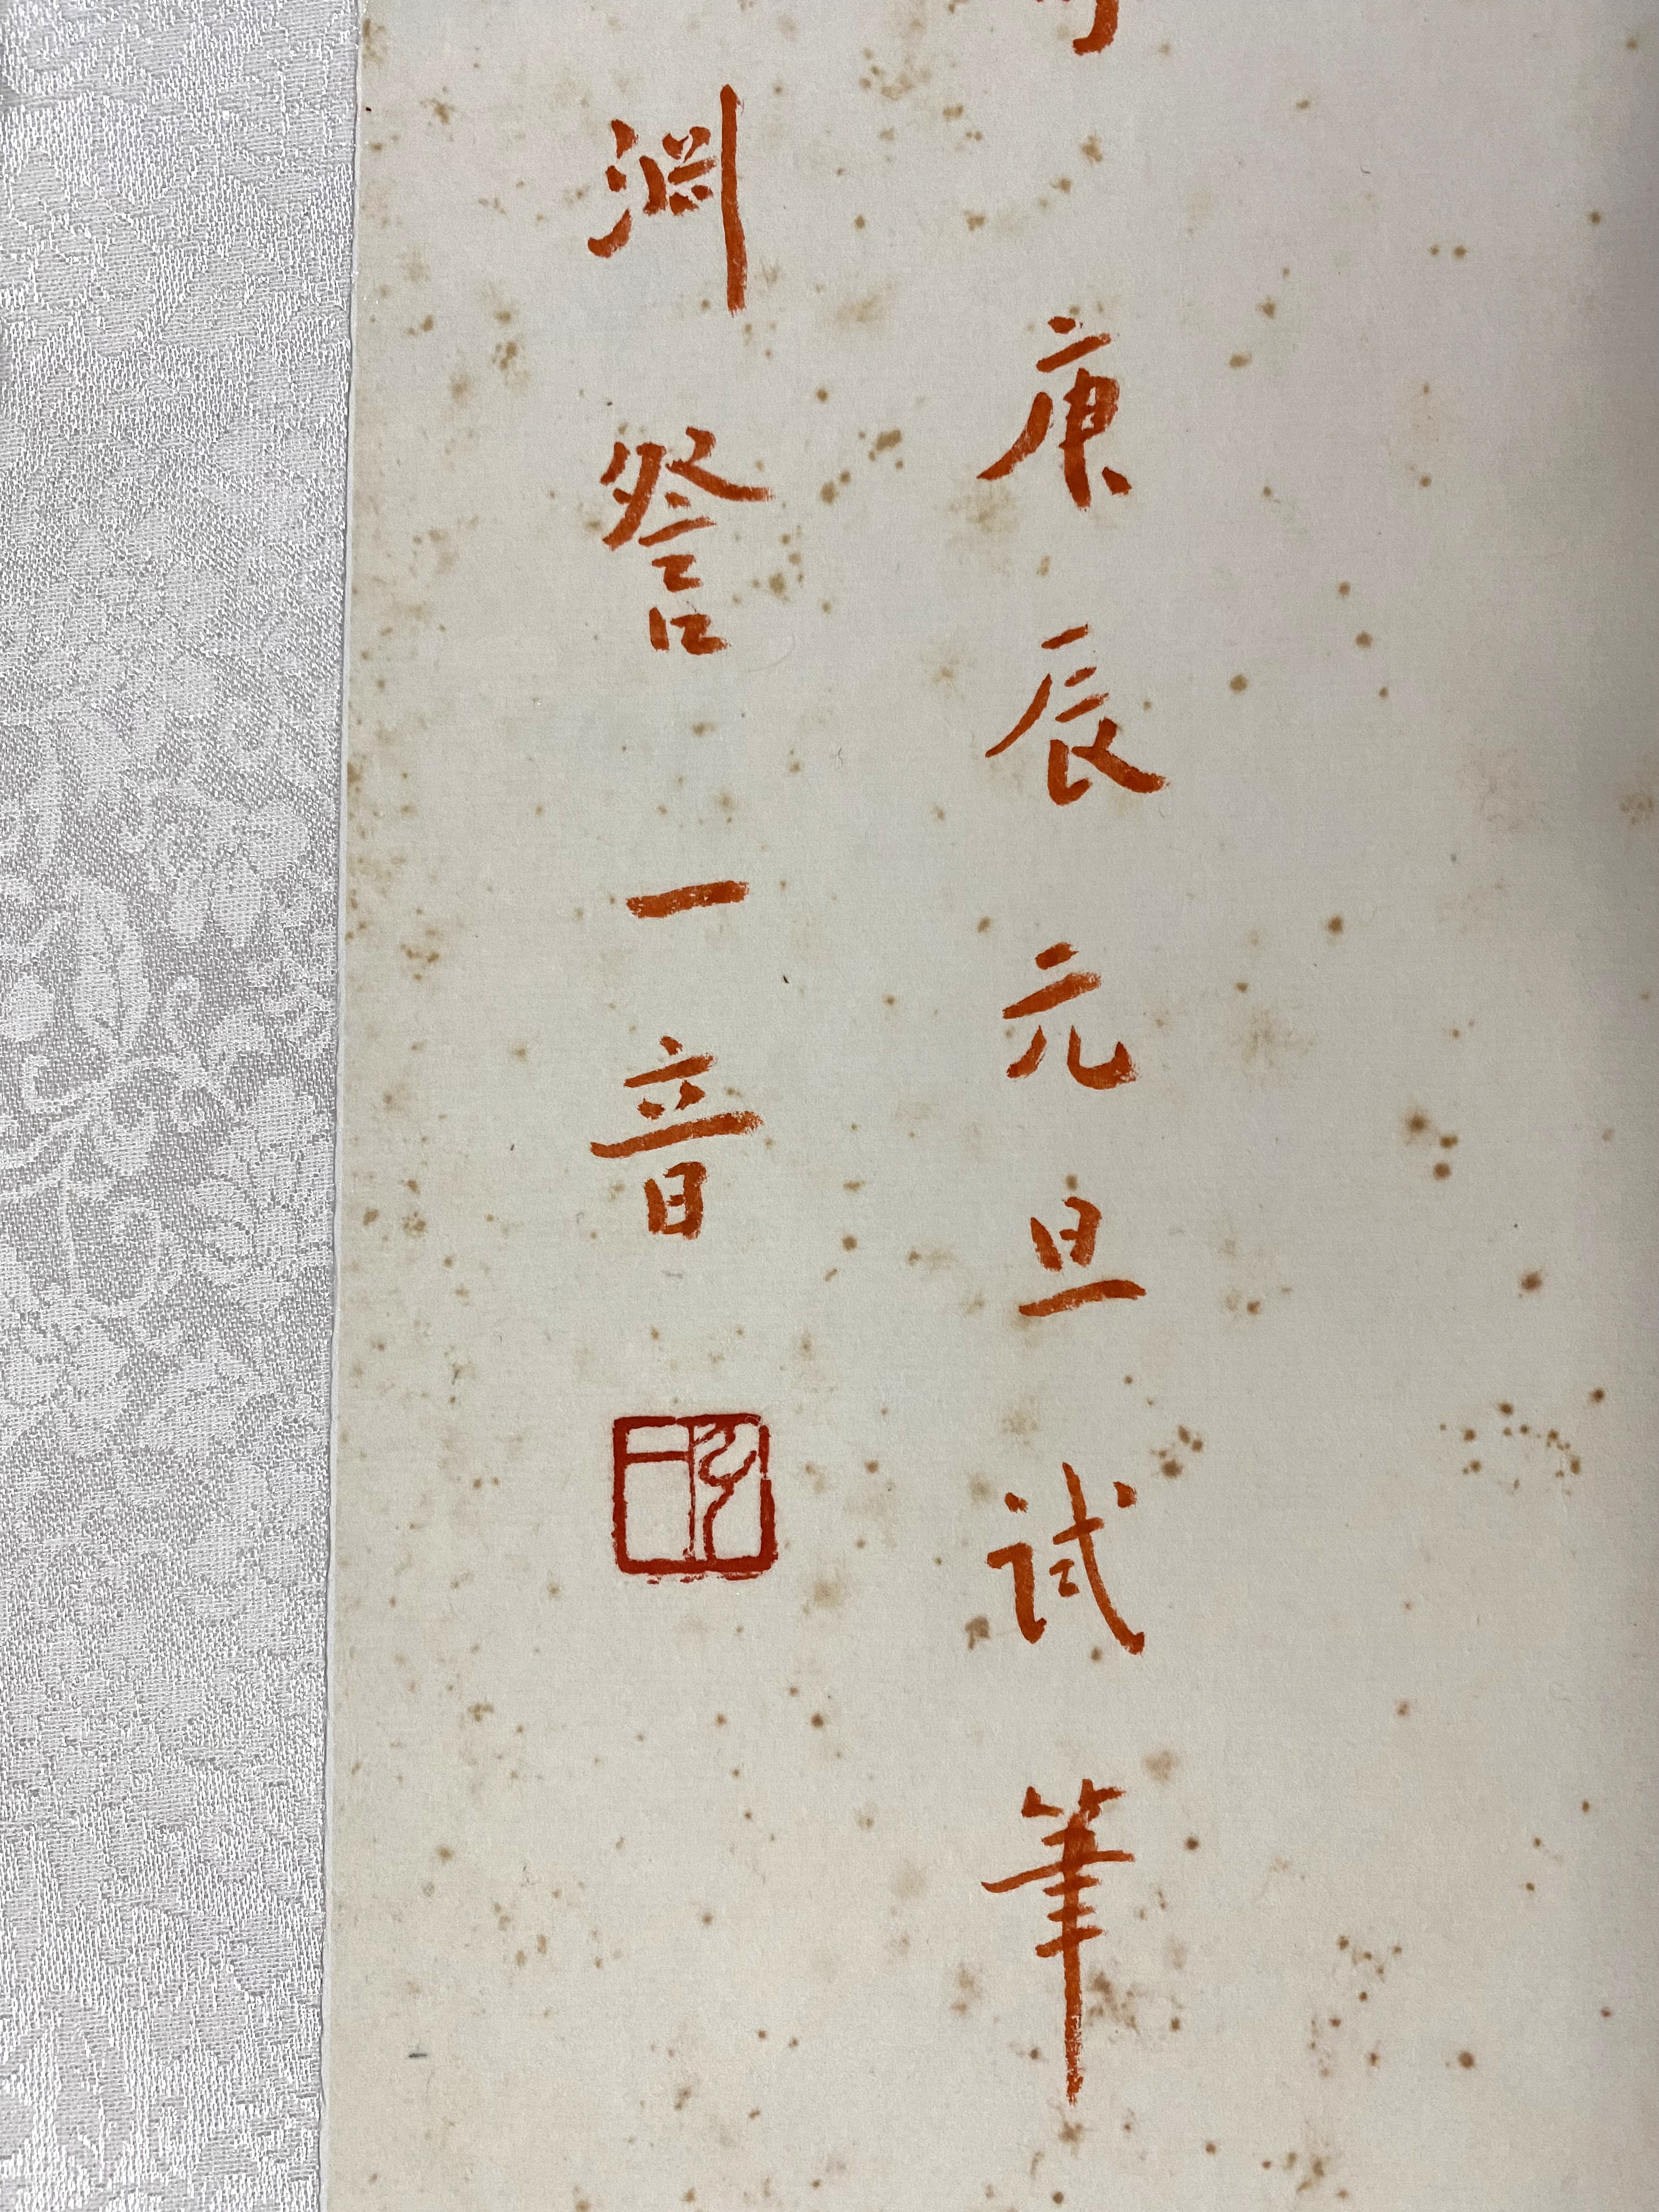 庚辰元旦试筆
渊詧一音